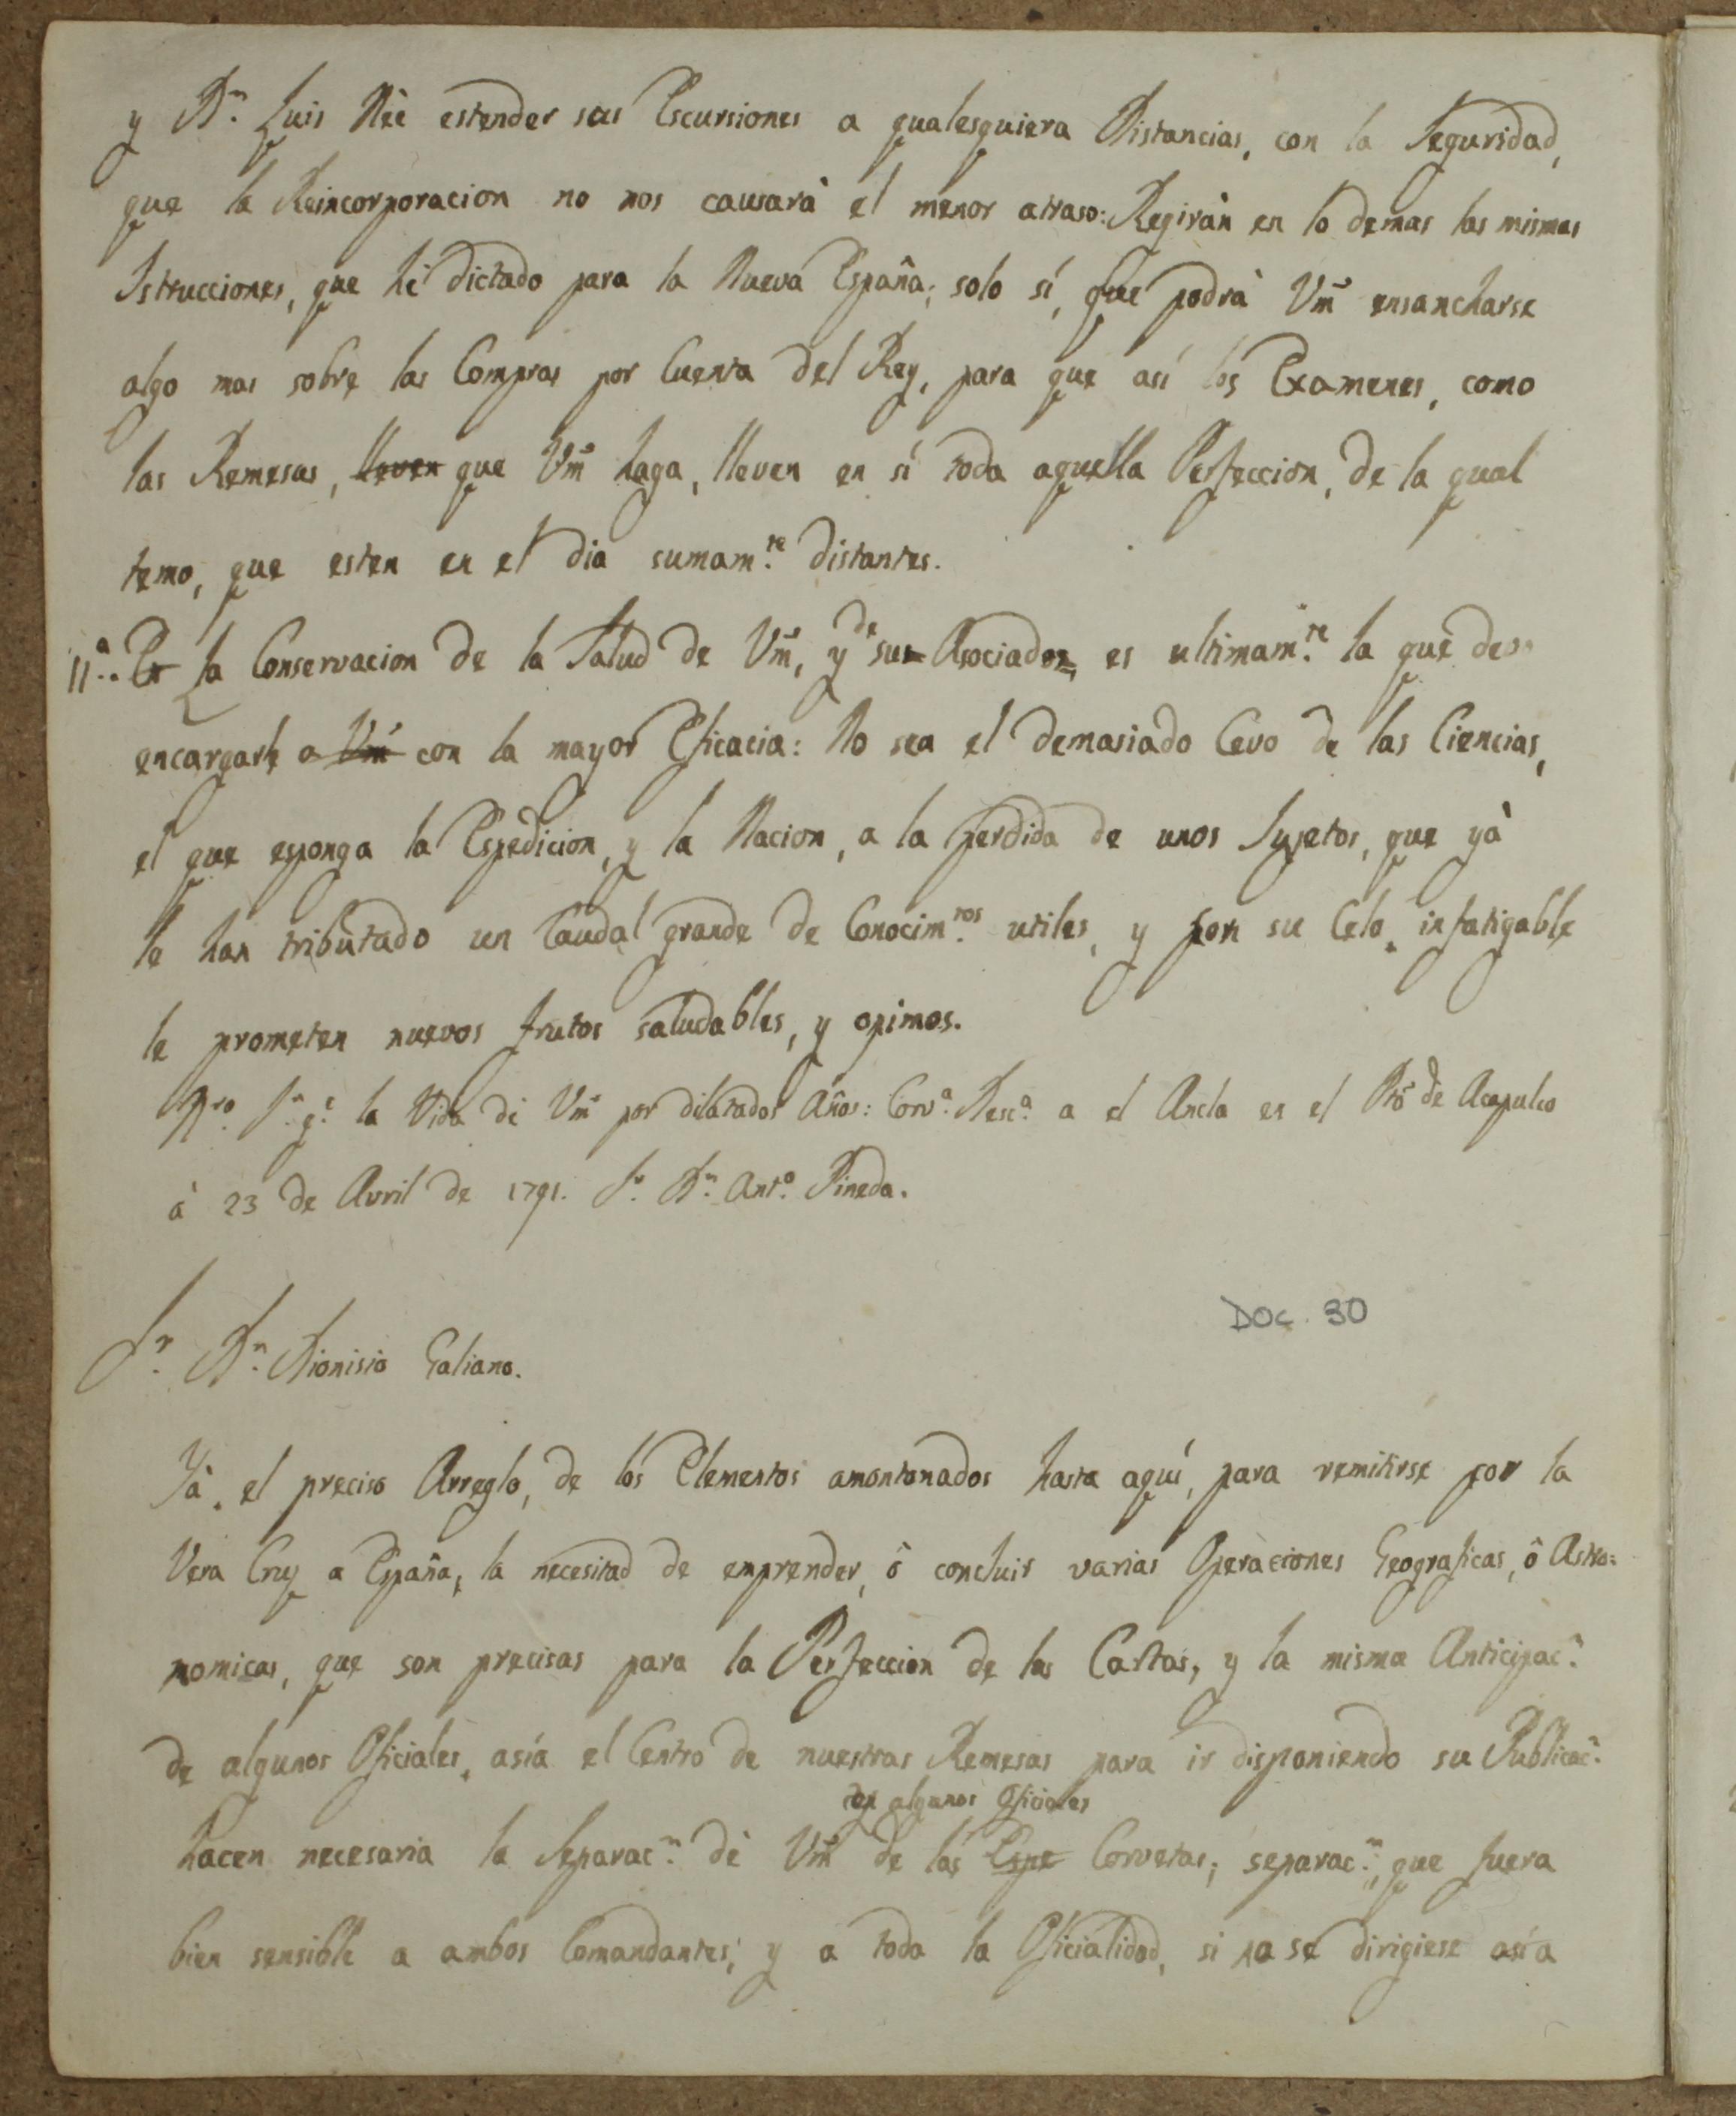 y D.n Luis Née estender sus Escursiones a qualesquiera Distancias, con la Seguridad,
que la Reincorporacion no nos causarà el menor atraso: Regiràn en lo demas las mismas
Istrucciones, que hè dictado para la Nueva España; solo sí, que podrà Vm̃ ensancharse
algo mas sobre las Compras por Cuenta del Rey, para que asi los Examenes, como
las Remesas, lleven que Vm̃ haga, lleven en sì toda aquella Perfeccion, de la qual
temo, que esten en el dia sumam.te distantes.
de
11.a Es la Conservacion de la Salud de Vm̃, y sus Asociados, es ultimam.te la que devo
encargarle a Vm̃ con la mayor Eficacia: No sea el demasiado Cevo de las Ciencias,
el que esponga la Espedicion, y la Nacion, a la perdida de unos Sujetos, que yà
le han tributado un Caudal grande de Conocim.tos utiles, y con su Celo infatigable
le prometen nuevos frutos saludables, y opimos.
N.ro S.r g.e la Vida de Vm̃ por dilatados Años: Corv.a Desc.a a el Ancla en el Pto de Acapulco
à 23 de Avril de 1791. S.r D.n Ant.o Pineda.
DOC. 30
S.r D.n Dionisio Galiano.
Yà el preciso Arreglo, de los Elementos amontonados hasta aquí, para remitirse por la
Vera Cruz a España, la necesitad de emprender, ô concluir varias Operaciones Geograficas, ô Astro=
nomicas, que son precisas para la Perfeccion de las Cartas, y la misma Anticipac.n
de algunos Oficiales, asía el Centro de nuestras Remesas para ir disponiendo su Publicac.n
de algunos Oficiales
hacen necesaria la Separac.n de Vm̃ de las Espe Corvetas; separac.n, que fuera
bien sensible a ambos Comandantes, y a toda la Oficialidad, si no se dirigiese asía